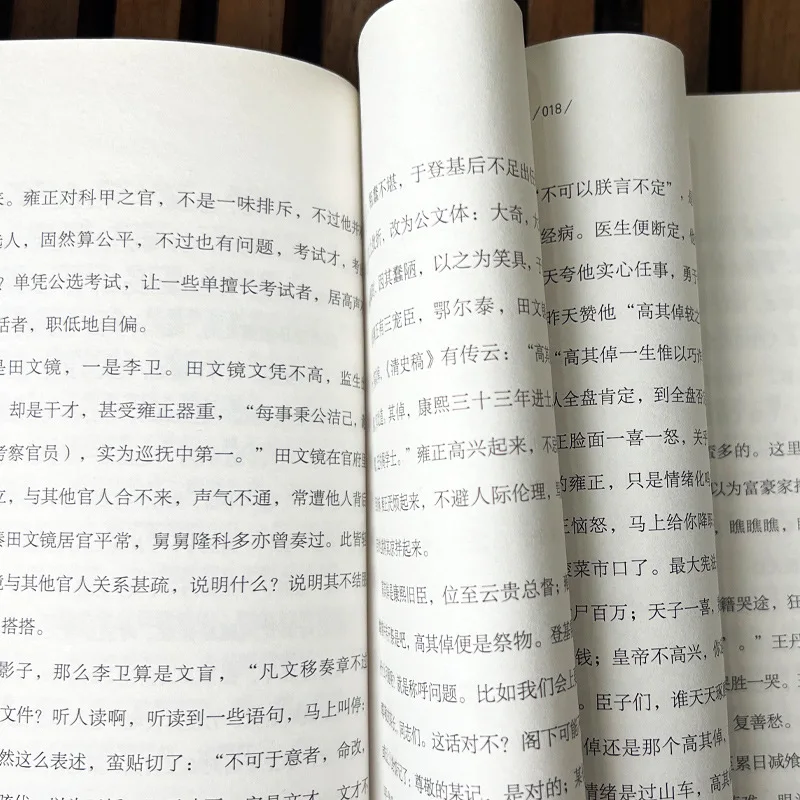 来。雍正对科甲之官，不是一味排斥，不过他并
选人，固然算公平，不过也有问题，考试才，考
？单凭公选考试，让一些单擅长考试者，居高声
话者，职低地自偏。
是田文镜，一是李卫。田文镜文凭不高，监生
，却是干才，甚受雍正器重，“每事秉公洁己，
考察官员），实为巡抚中第一。”田文镜在官府里
立，与其他官人合不来，声气不通，常遭他人背
奏田文镜居官平常，舅舅隆科多亦曾奏过。此皆
镜与其他官人关系甚疏，说明什么？说明其不结
搭搭。
影子，那么李卫算是文盲，“凡文移奏章不过
文件？听人读啊，听读到一些语句，马上叫停：
然这么表述，蛮贴切了：“不可于意者，命改，
不堪，于登基后不足
，改为公文体：大奇，
因其蠢陋，以之为笑具，于
三宠臣，鄂尔泰，田文
《清史稿》有传云：“高
其倬，康熙三十三年进士
学士。”雍正高兴起来，不
起来，不避人际伦理，
样起来。
康熙旧臣，位至云贵总督；
是吧，高其倬便是祭物。登基
就是称呼问题。比如我们会上
同志们。这话对不？阁下可能
：尊敬的某记，是对的；某
/018/
“不可以朕言不定”，
经病。医生便断定，
天夸他实心任事，勇于
昨天赞他“高其倬较之
“高其倬一生惟以巧
人全盘肯定，到全盘否
正脸面一喜一怒，关乎
的雍正，只是情绪化
王恼怒，马上给你降
菜市口了。最大宪法
尸百万；天子一喜，
钱；皇帝不高兴，你
。臣子们，谁天天
倬还是那个高其倬，
情绪是过山车，高其
多的。这里
以为富豪家
，瞧瞧瞧，
哭途，狂
。”王丹
胜一哭。
复善愁。
累日减飧